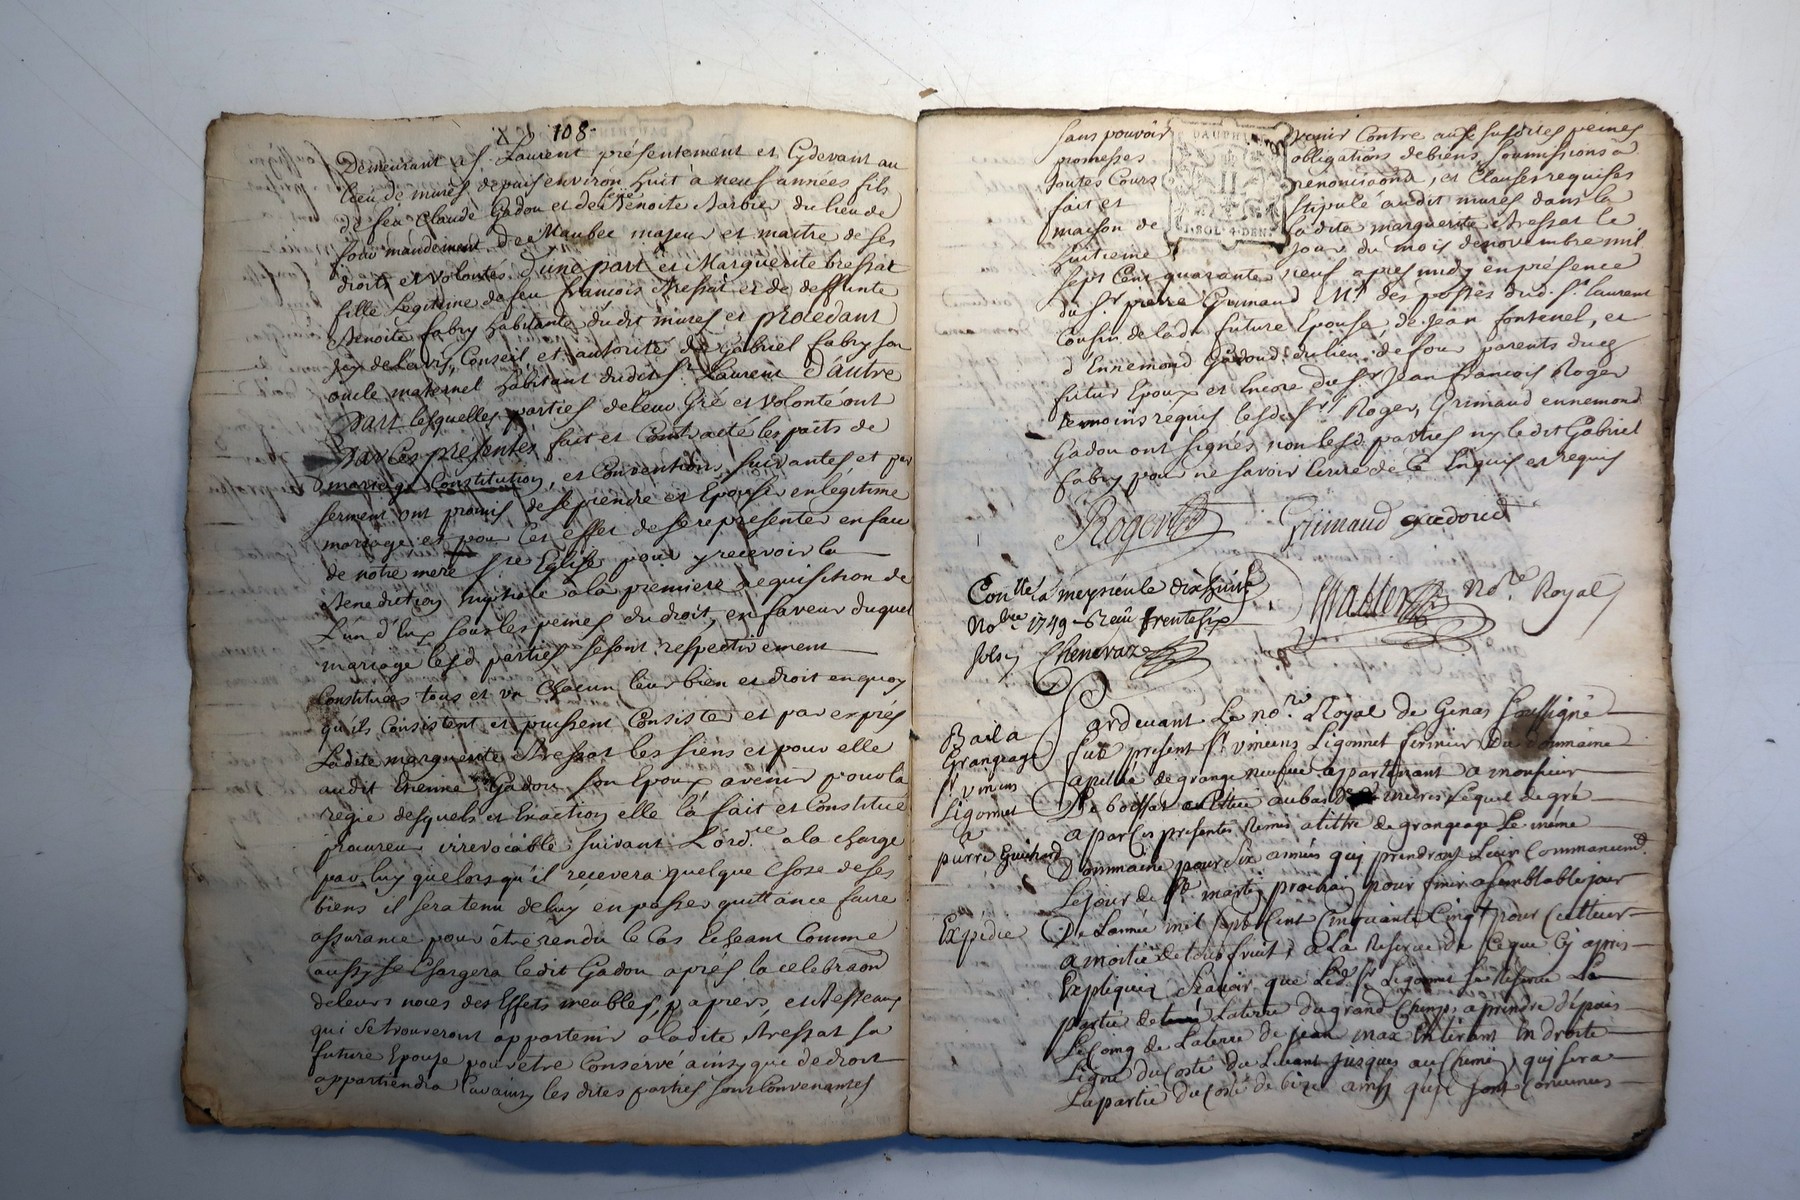 108
Demeurant a St Laurent présentement et Cydevant au
lieu de mures depuis environ huit a neuf années fils
de feu Claude Gadou et de Benoite Barbier du lieu de
four mandement de Maubec majeur et maitre de ses
droits et volontés d'une part et Marguerite bressat
fille Legitime de feu francois Bressat et de deffunte
Benoite fabry habitante dudit mures et procedant
de L'avis, Conseil, et autorité de Gabriel fabry son
oncle maternel habitant dudit St Laurent d'autre
Part lesquelles parties de leur gré et volonté ont
Par Ces presentes fait et Contracté les pacts de
mariage Constitution, et Conventions suivantes et par
serment ont promis de se prendre et Epouser en légitime
mariage et pour Cet effet de se representer en face
de notre mere Ste Eglise pour y recevoir la
Benediction nuptiale a la premiere requisition de
L'un d'Eux sous les peines du droit, en faveur duquel
mariage lesd. parties se sont respectivement
Constitués tous et un Chacun leur bien et droit en quoy
qu'ils Consistent et puissent Consister et par exprés
Ladite marguerite Bressat les siens et pour elle
audit Etienne Gadou son Epoux avenir pour la
regie desquels et Exaction elle l'a fait et Constitué
procureur irrevocable suivant L'ord.ce a la charge
par luy que lors qu'il recevera quelque chose de ses
biens il sera tenu de luy en passer quittance faire
assurance pour être rendu le Cas Echeant Comme
aussy se Chargera ledit Gadou aprés la celebraon
de leurs noces des Effets meubles, papiers, et Bestiaux
qui se trouveront appartenir a ladite Bressat sa
future Epouse pour etre Conservé ainsy que de droit
appartiendra Car ainsy les dites parties sont Convenantes
sans pouvoir venir Contre aux susdites peines
promesses obligations de biens soumissions a
toutes Cours renonciaons, et Clauses requises
fait et stipulé audit mures dans la
maison de ladite marguerite Bressat le
huitieme jour du mois de novembre mil
sept Cent quarante neuf apres midy en présence
du Sr pierre Grimaud Mtre des postes dud. St laurent
Cousin de lade future Epouse, de Jean fontenel, et
d'Ennemond Gadoud du lieu de four parents dud
futur Epoux et Encore du Sr Jean francois Roger
temoins requis lesds Srs Roger, Grimaud ennemond
Gadou ont signés non lesd. parties ny ledit Gabriel
fabry pour ne savoir Ecrire de Ce Enquis et requis
Roger Grimaud gadoud
Conlle a meysieu le dix huit
Nobre 1749 Reçu trente six
sols Chenevaz
Nore Royal
Pardevant Le nore Royal de Genas soussigné
Bail a
Grangeage
Sr vincens
Ligonnet
a
pierre Guichard
fut present Sr vincens Ligonnet fermier du Dommaine
apellée de grange neufve appartenant a monsieur
De boissat située au bas de mures Lequel de gré
a par Ces presentes Remis a tittre de grangeage Le même
Dommaine pour six années qui prendront Leur Commancemt
Le jour de St martin prochain pour finir a semblable jour
Expédié
De L'année mil sept Cent Cinquante Cinq pour Cultiver
a moitié de tous fruits, a La Reserve de Ce que Cy apres
Expliqué, Scavoir que Led. Sr Ligonnet se Reserve La
partie de La terre du grand Champ a prendre depuis
Le Coing de La terre de jean max en tirant En droite
Ligne du Costé du Levant jusques au Chemin qui sera
La partie du Costé de bize ainsy qu'ils sont Convenus